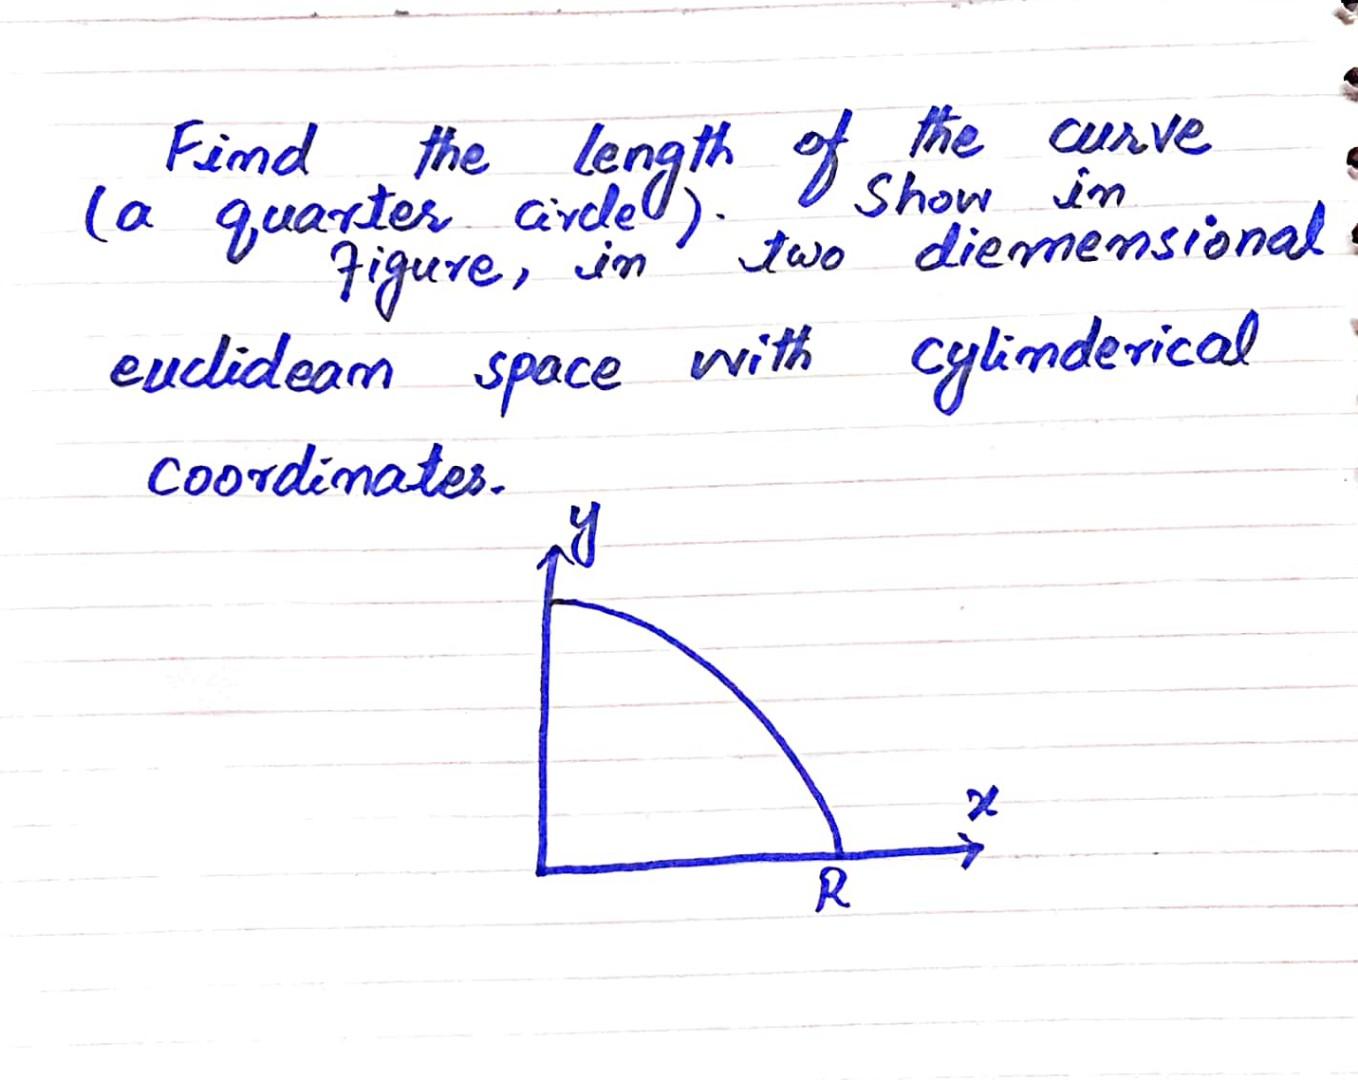 Find the length of the curve
(a quarter circle). Show in
figure, in two diemensional
euclidean space with cylinderical
coordinates.
y
x
R